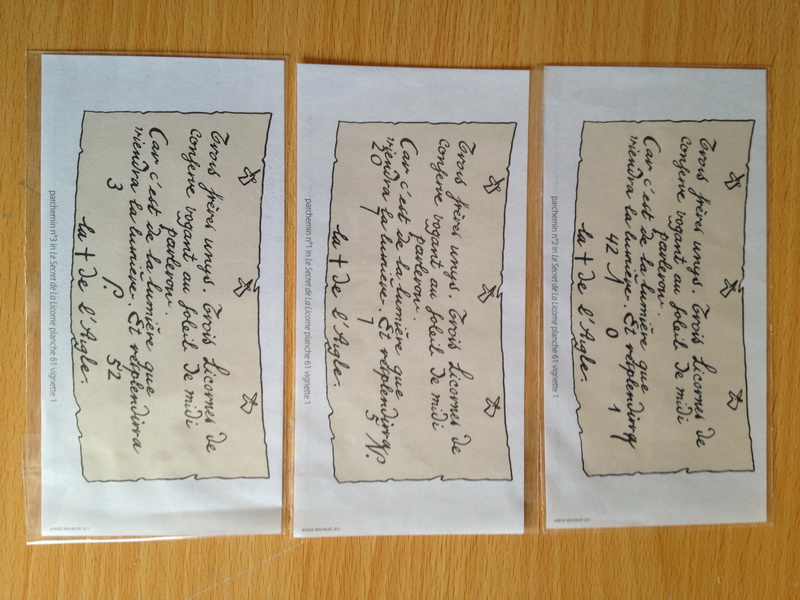 Trois frères unys. Trois Licornes de
conserve vogant au soleil de midi
parleron.
Car c'est de la lumière que
viendra la lumière. Et resplendira
42 0 1
la † de l'Aigle.
parchemin n°2 in Le Secret de La Licorne planche 61 vignette 1
Trois frères unys. Trois Licornes de
conserve vogant au soleil de midi
parleron.
Car c'est de la lumière que
viendra la lumière. Et resplendira
20 1 1 5 N°.
la † de l'Aigle.
parchemin n°1 in Le Secret de La Licorne planche 61 vignette 1
Trois frères unys. Trois Licornes de
conserve vogant au soleil de midi
parleron.
Car c'est de la lumière que
viendra la lumière. Et resplendira
3 52
la † de l'Aigle.
parchemin n°3 in Le Secret de La Licorne planche 61 vignette 1